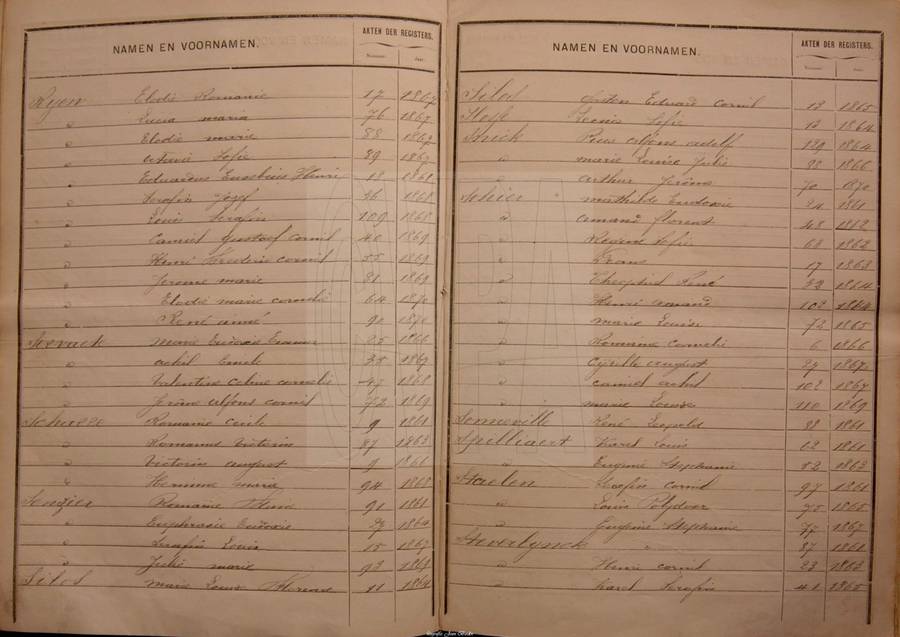 NAMEN EN VOORNAMEN.
AKTEN DER REGISTERS.
Nummer. Jaar.
Elodie Romanie 17 1867
" Lucia maria 76 1867
" Elodie marie 88 1867
" Sofie 89 1867
" Eduardus Eusebius Henri 18 1868
" Serafin Josef 46 1868
" Louis Serafin 109 1868
" Camiel Gustaef Cornil 40 1869
" Henri Frederic cornil 55 1869
" Jerome marie 81 1869
" Elodie marie cornelie 64 1870
" René aimé 90 1870
marie Eudoxie 1866
" achil Emile 35 1867
" Valentine Celine cornelie 47 1868
" Jerome Alfons cornil 72 1869
Romanie Cecile 9 1861
" Romanus Victorin 87 1863
" Victorin august 9 1866
" Hermine Marie 94 1868
Romanie 91 1861
" Euphrasie Eudoxie 1864
" Serafin Louis 15 1867
" Julie marie 93 1869
Silos marie Louise 11 1864
NAMEN EN VOORNAMEN.
AKTEN DER REGISTERS.
Nummer. Jaar.
Edward Cornil 13 1865
Sofie 13 1864
Pius alfons adolf 139 1864
" marie Louise Julie 98 1866
" arthur 70 1870
Schier mathilde Eudoxie 24 1861
" amand florent 48 1862
" Sofie 63 1862
" 17 1863
" Theophiel René 32 1864
" Henri amand 102 1864
" marie Louise 72 1865
" Romanie Camelie 6 1866
" Cyrille august 27 1867
" camiel achil 102 1867
" marie Louise 110 1869
Senneville René Leopold 88 1861
Spilliaert Karel Louis 62 1861
" Eugenie Stephanie 52 1863
Staelen Serafin cornil 97 1861
" Louis Polydoor 75 1865
" Eugenie Stephanie 77 1867
Steverlynck " 87 1861
" Henri cornil 23 1863
" Karel Serafin 41 1865